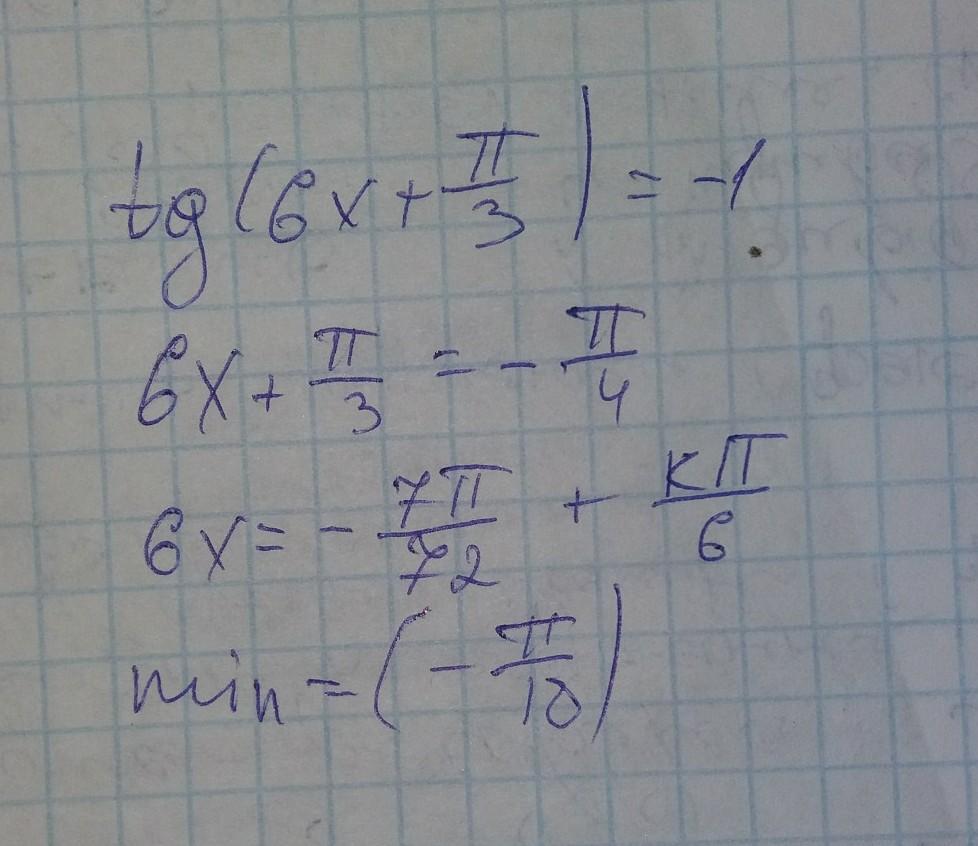 tg(6x + π/3) = -1
6x + π/3 = - π/4
6x = - 7π/72 + kπ/6
min = (- π/10)